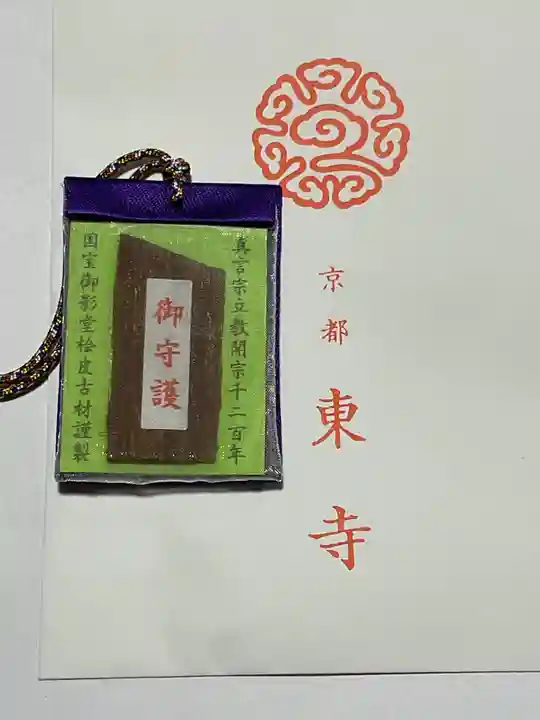 京都
東寺
真言宗立教開宗千二百年
御守護
国宝御影堂桧皮古材謹製